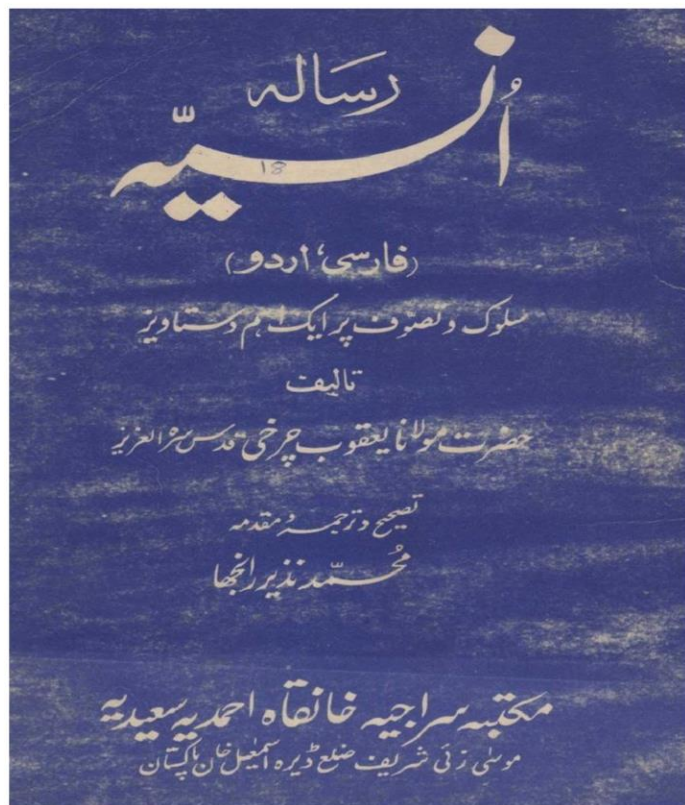 رسالہ
اُنسیّہ
18
(فارسی، اردو)
سلوک و تصوّف پر ایک اہم دستاویز
تالیف
حضرت مولانا یعقوب چرخی قدس سرّہ العزیز
تصحیح و ترجمہ و مقدمہ
مُحمّد نذیر رانجھا
مکتبہ سراجیہ خانقاہ احمدیہ سعیدیہ
موسیٰ زئی شریف ضلع ڈیرہ اسمٰعیل خان پاکستان